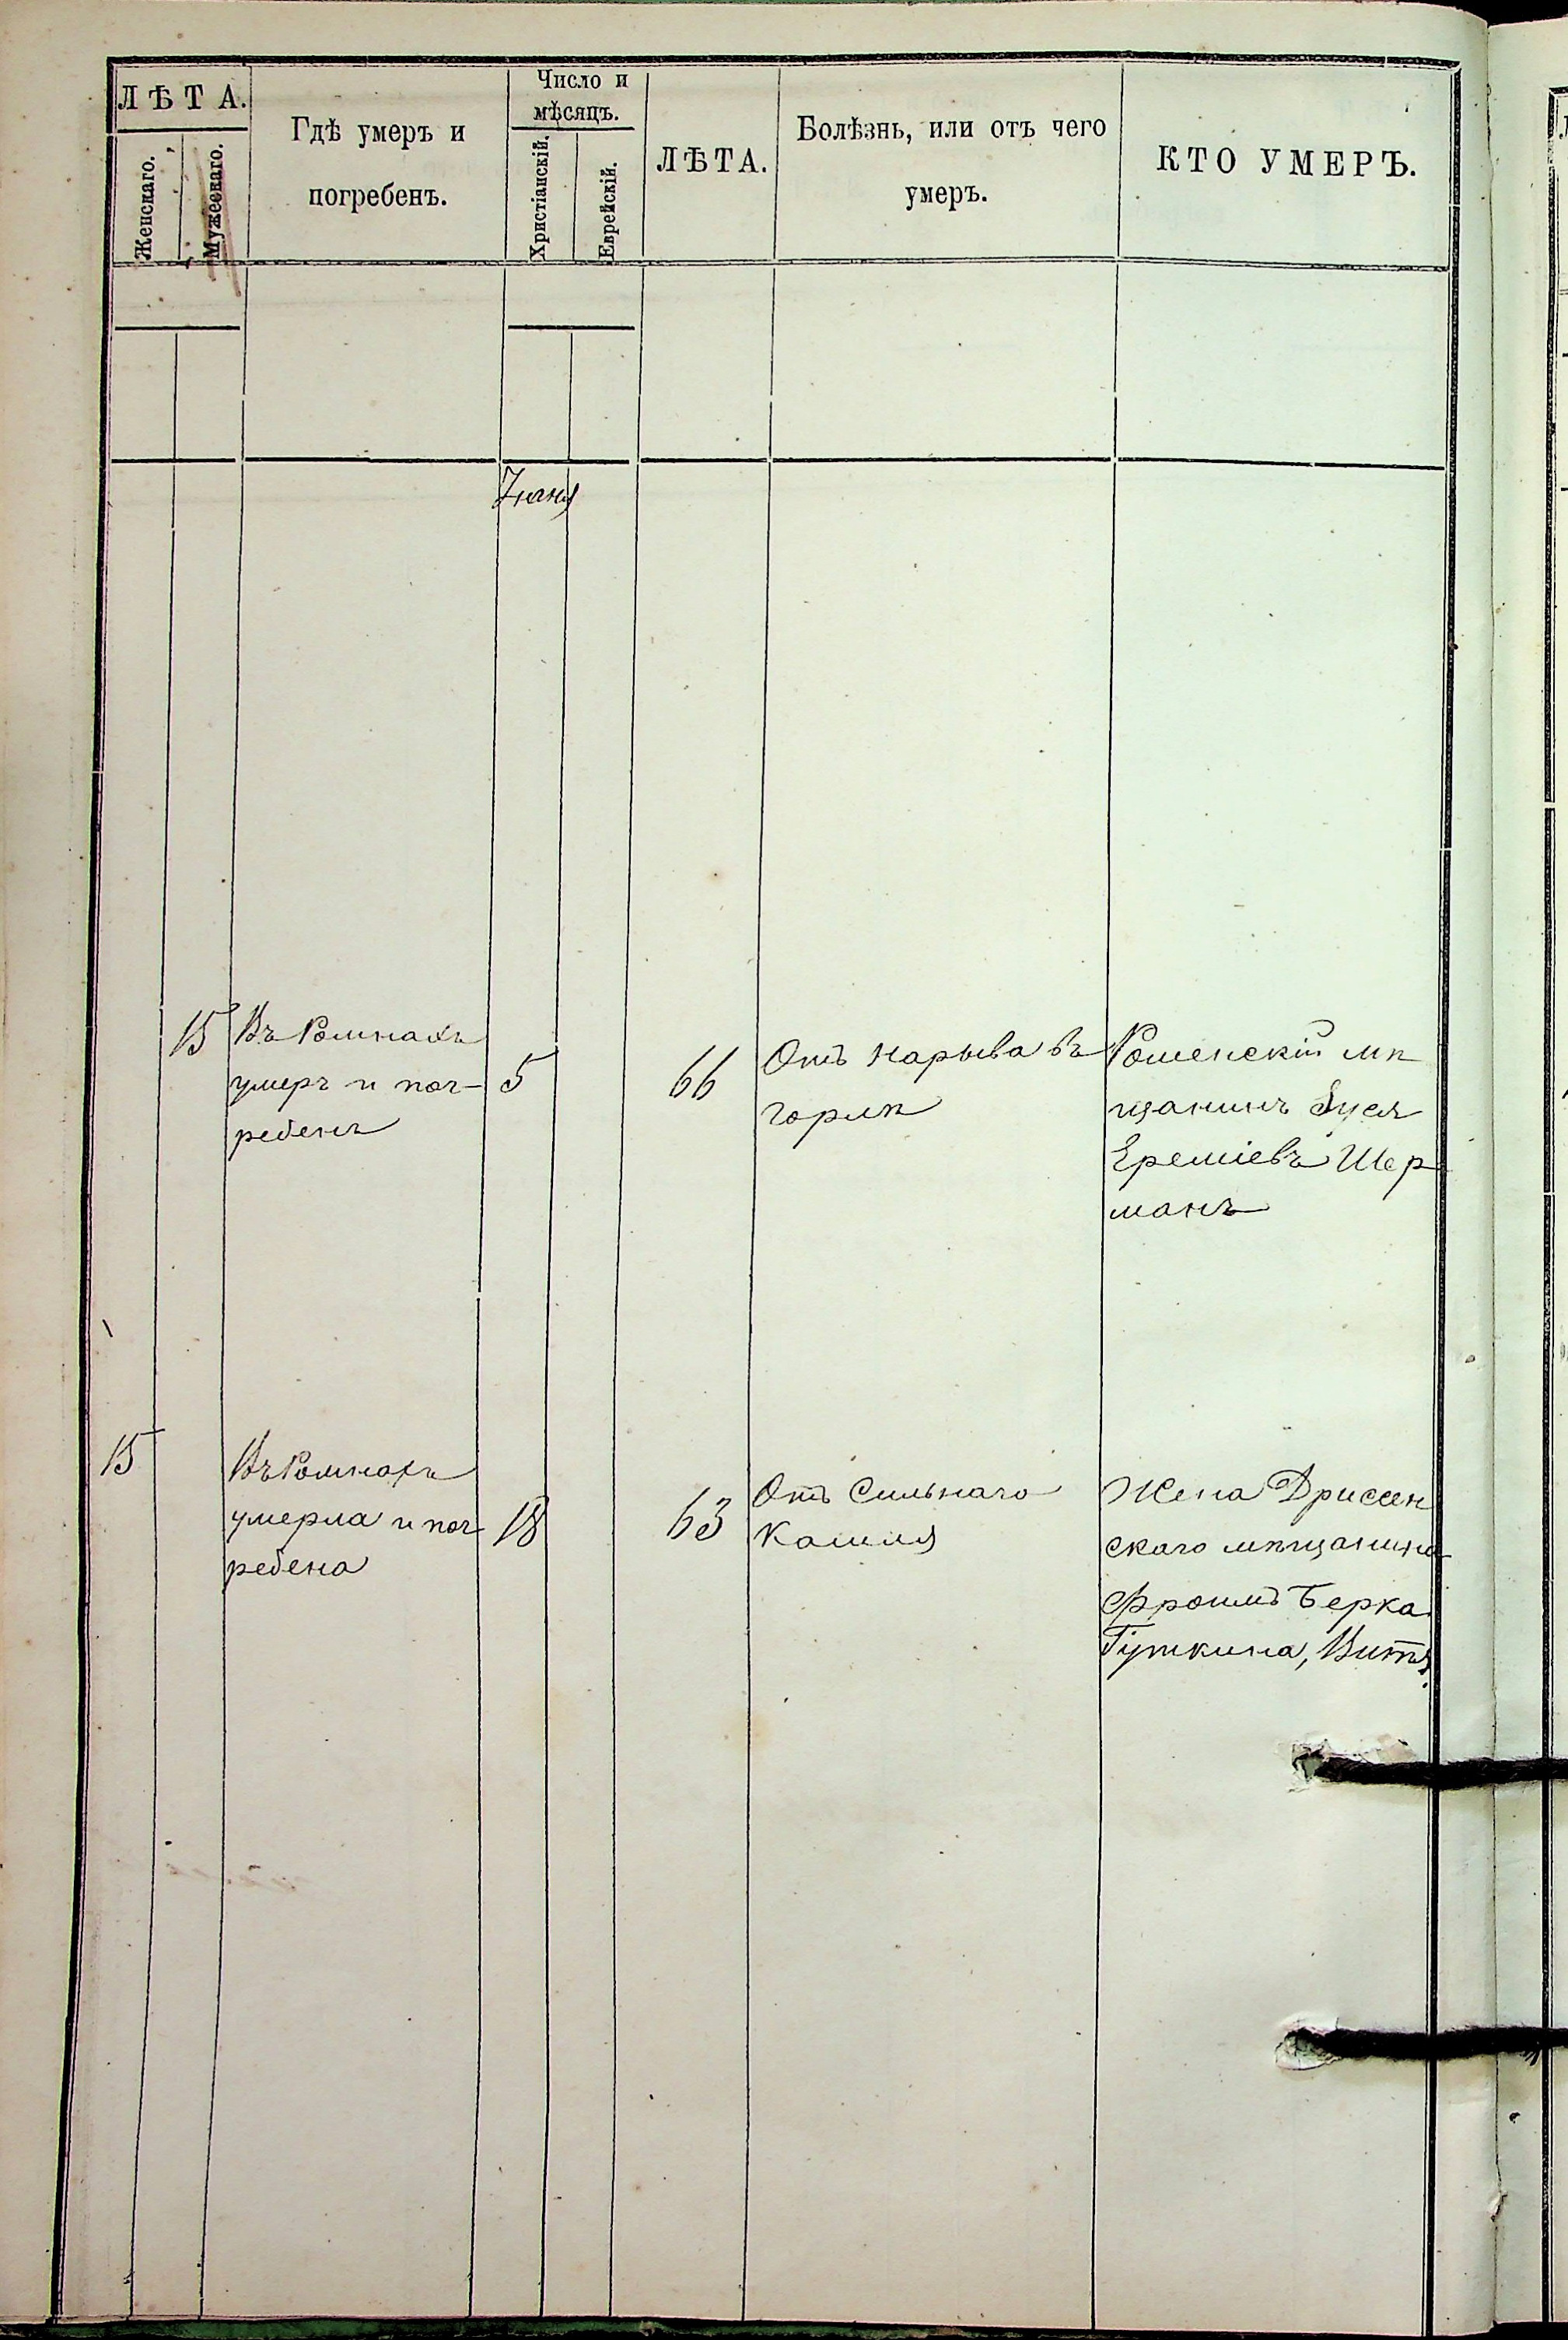 ЛѢТА.
Женскаго.
Мужескаго.
Гдѣ умеръ и
погребенъ.
Число и
мѣсяцъ.
Христіанскій.
Еврейскій.
ЛѢТА.
Болѣзнь, или отъ чего
умеръ.
КТО УМЕРЪ.
Іюня
15
Въ Ромнахъ
умеръ и пог-
ребенъ
5
66
Отъ нарыва въ
горлѣ
Роменскій мѣ
щанинъ
Еремiевъ Шер
манъ
15
Въ Ромнахъ
умерла и пог-
ребена
18
63
Отъ Сильнаго
Кашля
Жена Дриссен
скаго мѣщанина
Фроимъ Берка
Гуткина, Витя.